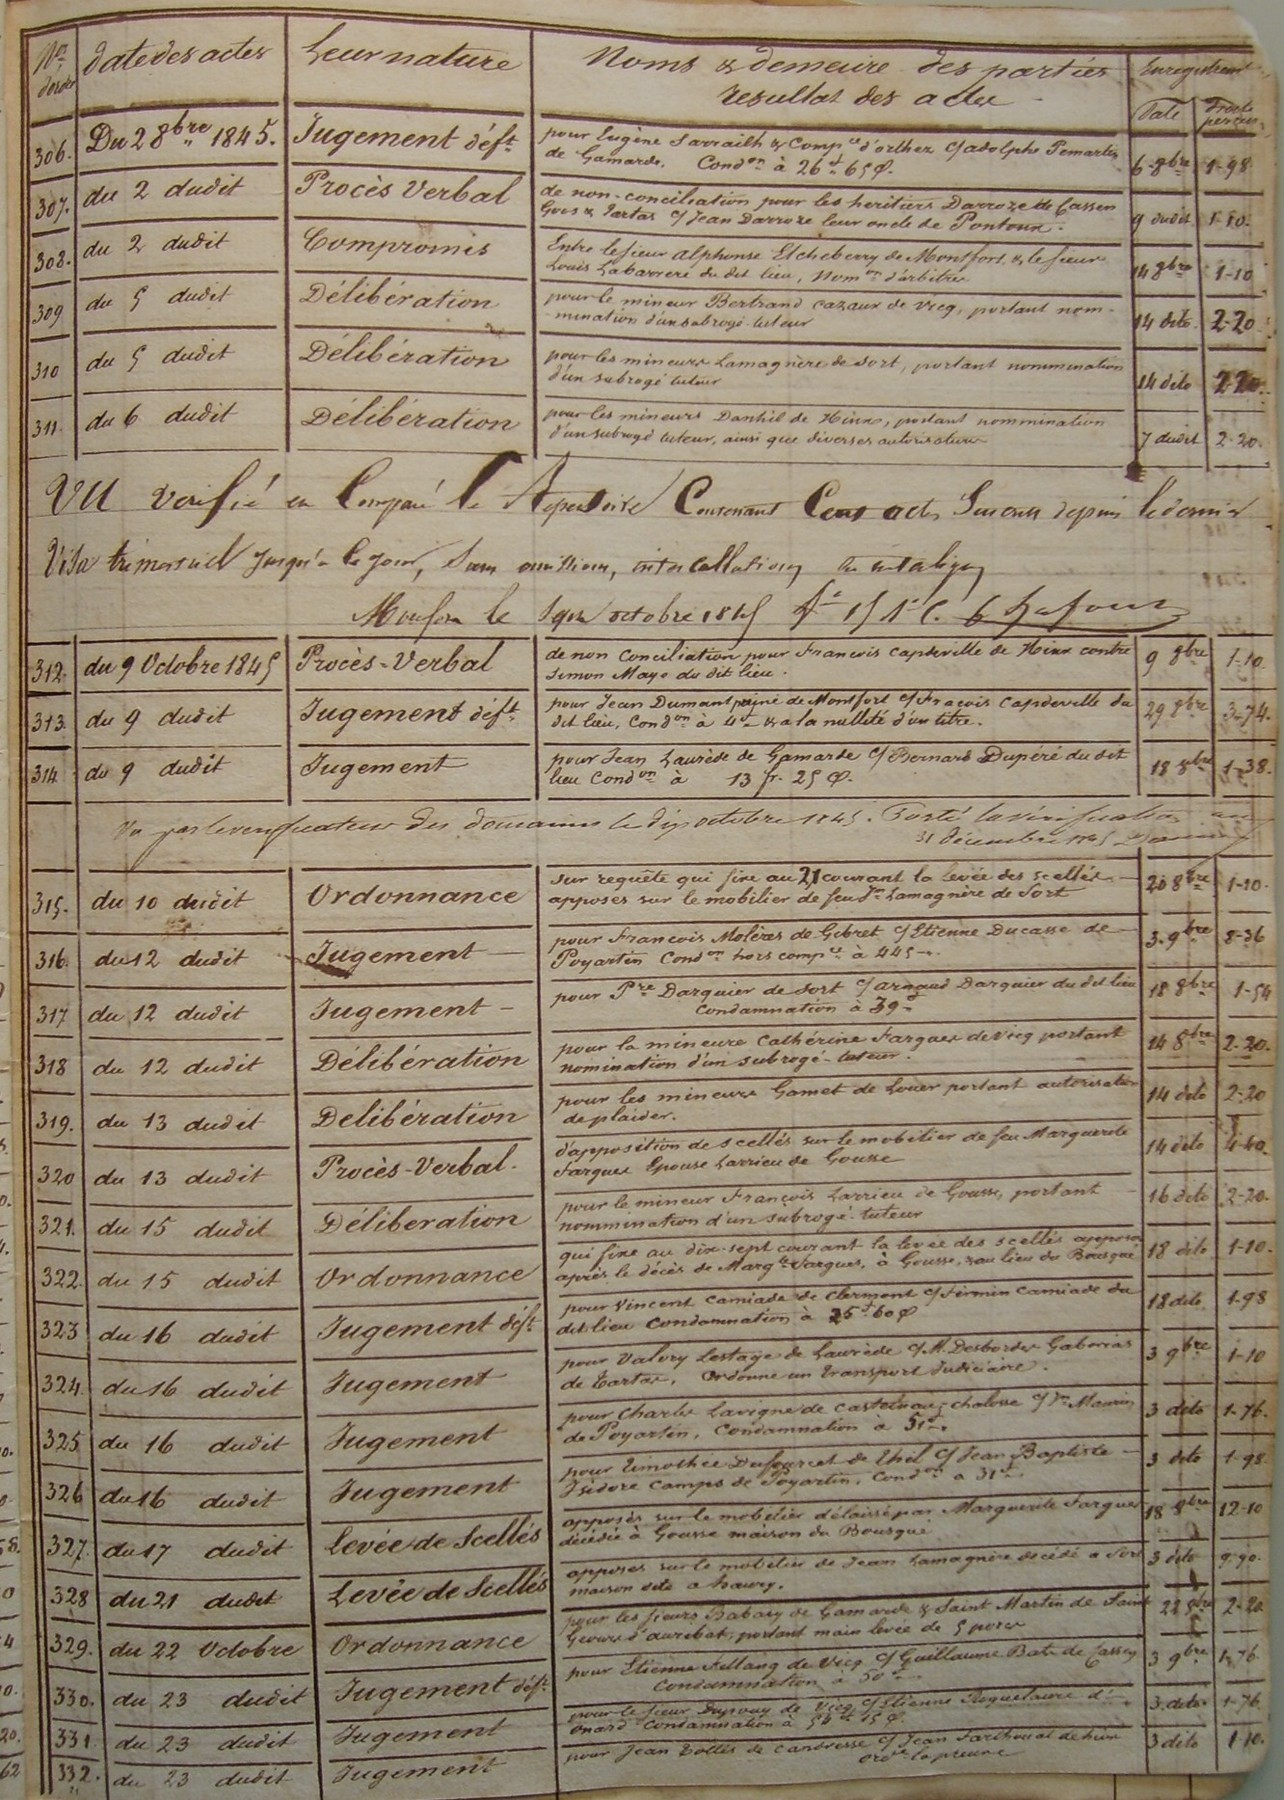 Nos d'ordre | date des actes | Leur nature | Noms & demeure des parties | Enregistrement
résultat des actes | Date | Droits perçus
306. | Du 2 8bre 1845. | Jugement déft. | pour Eugène Sarrailh & Compie d'orthez c/ adolphe Pemartin
de Gamarde. Condon à 26f 65c. | 6 8bre | 1-98
307. | du 2 dudit | Procès Verbal | de non-conciliation pour les heritiers Darroze de Cassen
Goos & Tartas c/ Jean Darroze leur oncle de Pontonx. | 9 dudit | 1-10.
308. | du 2 dudit | Compromis | Entre le sieur alphonse Etcheberry de Montfort & le sieur
Louis Labarrere du dit lieu, Nomon d'arbitres | 14 8bre | 1-10
309 | du 5 dudit | Délibération | pour le mineur Bertrand cazaux de Vicq, portant nom-
-mination d'un subrogé-tuteur | 14 dito. | 2-20.
310 | du 5 dudit | Délibération | pour les mineurs Lamagnère de Sort, portant nommination
d'un subrogé tuteur | 14 dito | 2-20.
311. | du 6 dudit | Délibération | pour les mineurs Danhil de Hinx, portant nommination
d'un subrogé tuteur, ainsi que diverses autorisations | 7 dudit | 2-20.
VU vérifié et Comparé le Répertoire Contenant Cent actes Inscrits depuis le dernier
Visa trimestriel jusqu'à ce jour, Sans omissions, intercallations ni
Montfort le Sept octobre 1845
312. | du 9 Octobre 1845 | Procès-Verbal | de non Conciliation pour Francois Capdeville de Hinx contre
Simon Maye du dit lieu. | 9 8bre | 1-10.
313. | du 9 dudit | Jugement déft. | pour Jean Dumont père de Montfort c/ Fracois Capdeville du
dit lieu, Condon à 4f & a la nulleté d'un titre. | 29 8bre | 3-74.
314 | du 9 dudit | Jugement | pour Jean Laurède de Gamarde c/ Bernard Dupéré du dit
lieu Condon à 13 fr. 25 c. | 18 8bre | 1-38.
Vu par le verificateur des domaines le dix octobre 1845. Porté la vérification au
31 décembre 1845
315. | du 10 dudit | Ordonnance | sur requête qui fixe au 21 courant la levée des scellés
apposés sur le mobilier de feu Jn Lamagnère de Sort | 20 8bre | 1-10.
316. | du 12 dudit | Jugement | pour Francois Molères de Gibret c/ Etienne Ducasse de
Poyartin Condon hors compce à 445-. | 3. 9bre | 8-36
317 | du 12 dudit | Jugement | pour Pre Darquier de Sort c/ arnaud Darquier du dit lieu
Condamnation à 39f | 18 8bre | 1-54
318 | du 12 dudit | Délibération | pour la mineure Cathérine Fargues de Vicq portant
nomination d'un subrogé-tuteur. | 14 8bre | 2-20.
319. | du 13 dudit | Délibération | pour les mineurs Gamet de Louer portant autorisation
de plaider. | 14 dito | 2-20
320 | du 13 dudit | Procès-Verbal. | d'apposition de scellés sur le mobilier de feu Marguerite
Fargues Epouse Larrieu de Gousse | 14 dito | 4-40.
321. | du 15 dudit | Déliberation | pour le mineur François Larrieu de Gousse, portant
nommination d'un subrogé-tuteur | 16 dito | 2-20.
322. | du 15 dudit | Ordonnance | qui fixe au dix-sept courant la levée des scellés apposés
après le décès de Margte Fargues, à Gousse, au lieu du Bousqué | 18 dito | 1-10.
323 | du 16 dudit | Jugement déft | pour Vincent Camiade de Clermont c/ Firmin Camiade du
dit lieu Condamnation à 25f 60c | 18 dito. | 1-98
324. | du 16 dudit | Jugement | pour Valery Lestage de Laurède c/ M. Desbordes Gaborias
de Tartas, Ordonne un transport Judiciaire. | 3 9bre | 1-10
325 | du 16 dudit | Jugement | pour Charles Lavigne de Castelnau-chalosse c/ Jn Maurin
de Poyartin, Condamnation à 51f. | 3 dito | 1-76.
326 | du 16 dudit | Jugement | pour Timothée Dufourcet de Thil c/ Jean Baptiste
Isidore Camps de Poyartin, Condon a 31f. | 3 dito | 1-98.
327. | du 17 dudit | Levée de Scellés | apposés sur le mobilier délaissé par Marguerite Fargues
décédée à Gousse maison du Bousqué | 18 8bre | 12-10
328 | du 21 dudit | Levée de Scellés | apposés sur le mobilier de Jean Lamagnère décédé a Sort
maison dite a | 3 dito | 9-90.
329. | du 22 Octobre | Ordonnance | pour les sieurs Babary de Gamarde & Saint Martin de Saint
Geours d'auribat, portant main levée de 5 porcs | 22 8bre | 2-20
330. | du 23 dudit | Jugement déft. | pour Etienne de Vicq c/ Guillaume Bats de Cassen
Condamnation à 50f | 3 9bre | 1-76
331 | du 23 dudit | Jugement | pour le sieur Dupouy de Vicq c/ Etienne Roquelaure d'
onard Condamnation à 54f 15c. | 3. dito. | 1-76.
332. | du 23 dudit | Jugement | pour Jean de Candresse c/ Jean de hinx
ordne la preuve | 3 dito | 1-10.